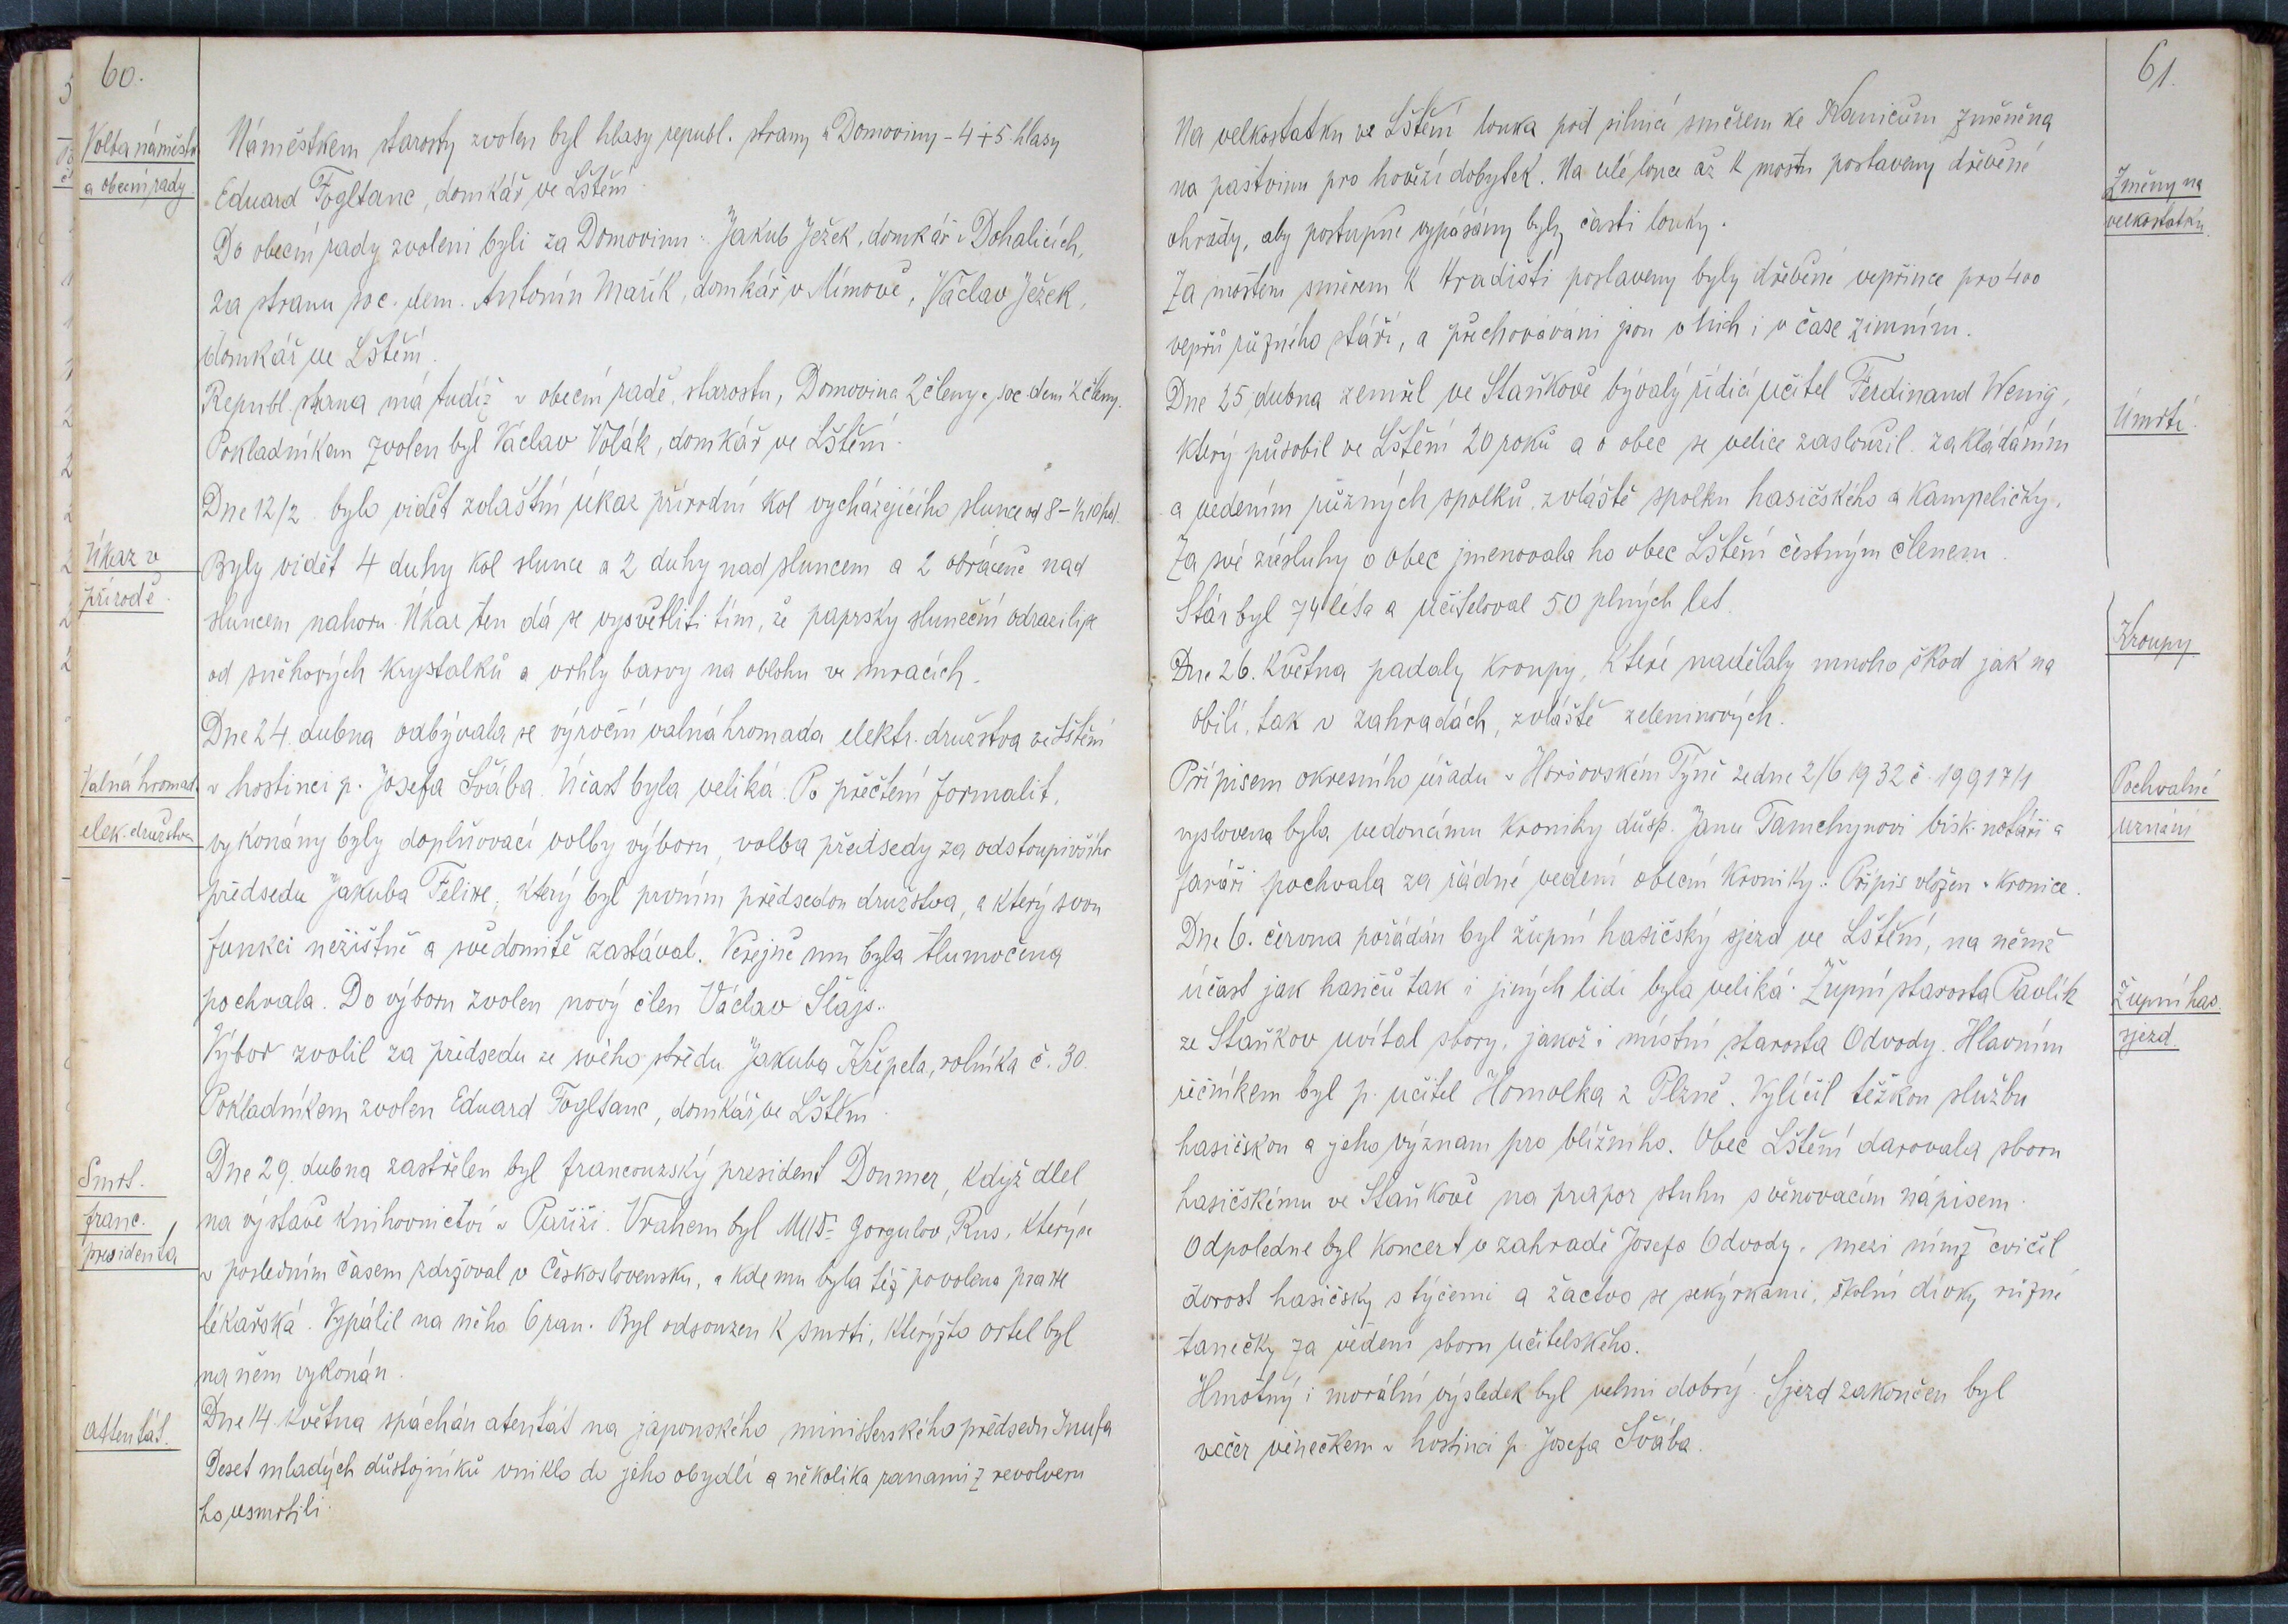 60.
Volba náměstk.
a obecní rady.
Náměstkem starosty zvolen byl hlasy republ. strany a Domoviny - 4+5 hlasy
Eduard Fogltanc, domkář ve Lštění.
Do obecní rady zvoleni byli za Domovinu: Jakub Ježek, domkář v Dohalicích,
za stranu soc. dem. Antonín Mařík, domkář v Mímově, Václav Ježek,
domkář ve Lštění.
Republ. strana má tudíž v obecní radě starostu, Domovina 2 členy a soc. dem 2 členy.
Pokladníkem zvolen byl Václav Volák, domkář ve Lštění.
Úkaz v
přírodě.
Dne 12/2 bylo vidět zvláštní úkaz přírodní kol vycházejícího slunce od 8-½10 hod.
Byly vidět 4 duhy kol slunce a 2 duhy nad sluncem a 2 obráceně nad
sluncem nahoru. Úkaz ten dá se vysvětliti tím, že paprsky sluneční odrazili se
od sněhových krystalků a vrhly barvy na oblohu ve mracích.
Valná hromad.
elek. družstva
Dne 24. dubna odbývala se výroční valná hromada elektr. družstva ve Lštění
v hostinci p. Josefa Švába. Účast byla veliká. Po přečtení formalit,
vykonány byly doplňovací volby výboru, volba předsedy za odstoupivšího
předsedu Jakuba Felixe, který byl prvním předsedou družstva, a který svou
funkci nezištně a svědomitě zastával. Veřejně mu byla tlumočena
pochvala. Do výboru zvolen nový člen Václav Šlajs.
Výbor zvolil za předsedu ze svého středu Jakuba Křepela, rolníka č. 30.
Pokladníkem zvolen Eduard Fogltanc, domkář ve Lštění.
Smrt.
franc.
presidenta
Dne 29. dubna zastřelen byl francouzský president Doumer, když dlel
na výstavě knihovnictví v Paříži. Vrahem byl MUDr Gorgulov, Rus, který se
v posledním časem zdržoval v Československu, a kde mu byla též povolena praxe
lékařská. Vypálil na něho 6 ran. Byl odsouzen k smrti, kterýžto ortel byl
na něm vykonán.
Attentát.
Dne 14. května spáchán atentát na japonského ministerského předsedu Inufa
Deset mladých důstojníků vniklo do jeho obydlí a několika ranami z revolveru
ho usmrtili.
61.
Změny na
velkostatku.
Na velkostatku ve Lštění louka pod silnicí směrem ke Vranicům změněna
na pastvinu pro hovězí dobytek. Na celé louce až k mostu postaveny dřevěné
ohrady, aby postupně vypásány byly části louky.
Za mostem směrem k Hradišti postaveny byly dřevěné vepřince pro 400
vepřů různého stáří, a přechováváni jsou v nich i v čase zimním.
Úmrtí.
Dne 25 dubna zemřel ve Staňkově bývalý řídící učitel Ferdinand Wenig,
který působil ve Lštění 20 roků a o obec se velice zasloužil zakládáním
a vedením různých spolků, zvláště spolku hasičského a Kampeličky.
Za své zásluhy o obec jmenovala ho obec Lštění čestným členem.
Stár byl 74 léta a učiteloval 50 plných let.
Kroupy.
Dne 26. května padaly kroupy, které nadělaly mnoho škod jak na
obilí, tak v zahradách, zvláště zeleninových.
Pochvalné
uznání
Přípisem okresního úřadu v Horšovském Týně ze dne 2/6 1932 č. 19917/1
vyslovena byla vedoucímu kroniky důsp. Janu Tamchynovi bisk. notáři a
faráři pochvala za řádné vedení obecní kroniky. Přípis vložen v kronice.
Župní has.
sjezd.
Dne 6. června pořádán byl župní hasičský sjezd ve Lštění, na němž
účast jak hasičů tak i jiných lidí byla veliká. Župní starosta Pavlík
ze Staňkov uvítal sbory, jakož i místní starosta Odvody. Hlavním
řečníkem byl p. učitel Homolka z Plzně. Vylíčil těžkou službu
hasičskou a jeho význam pro bližního. Obec Lštění darovala sboru
hasičskému ve Staňkově na prapor stuhu s věnovacím nápisem.
Odpoledne byl koncert v zahradě Josefa Odvody, mezi nímž cvičil
dorost hasičský s týčemi a žactvo se sekýrkami, školní dívky různé
tanečky za vedení sboru učitelského.
Hmotný i morální výsledek byl velmi dobrý. Sjezd zakončen byl
večer věnečkem v hostinci p. Josefa Švába.